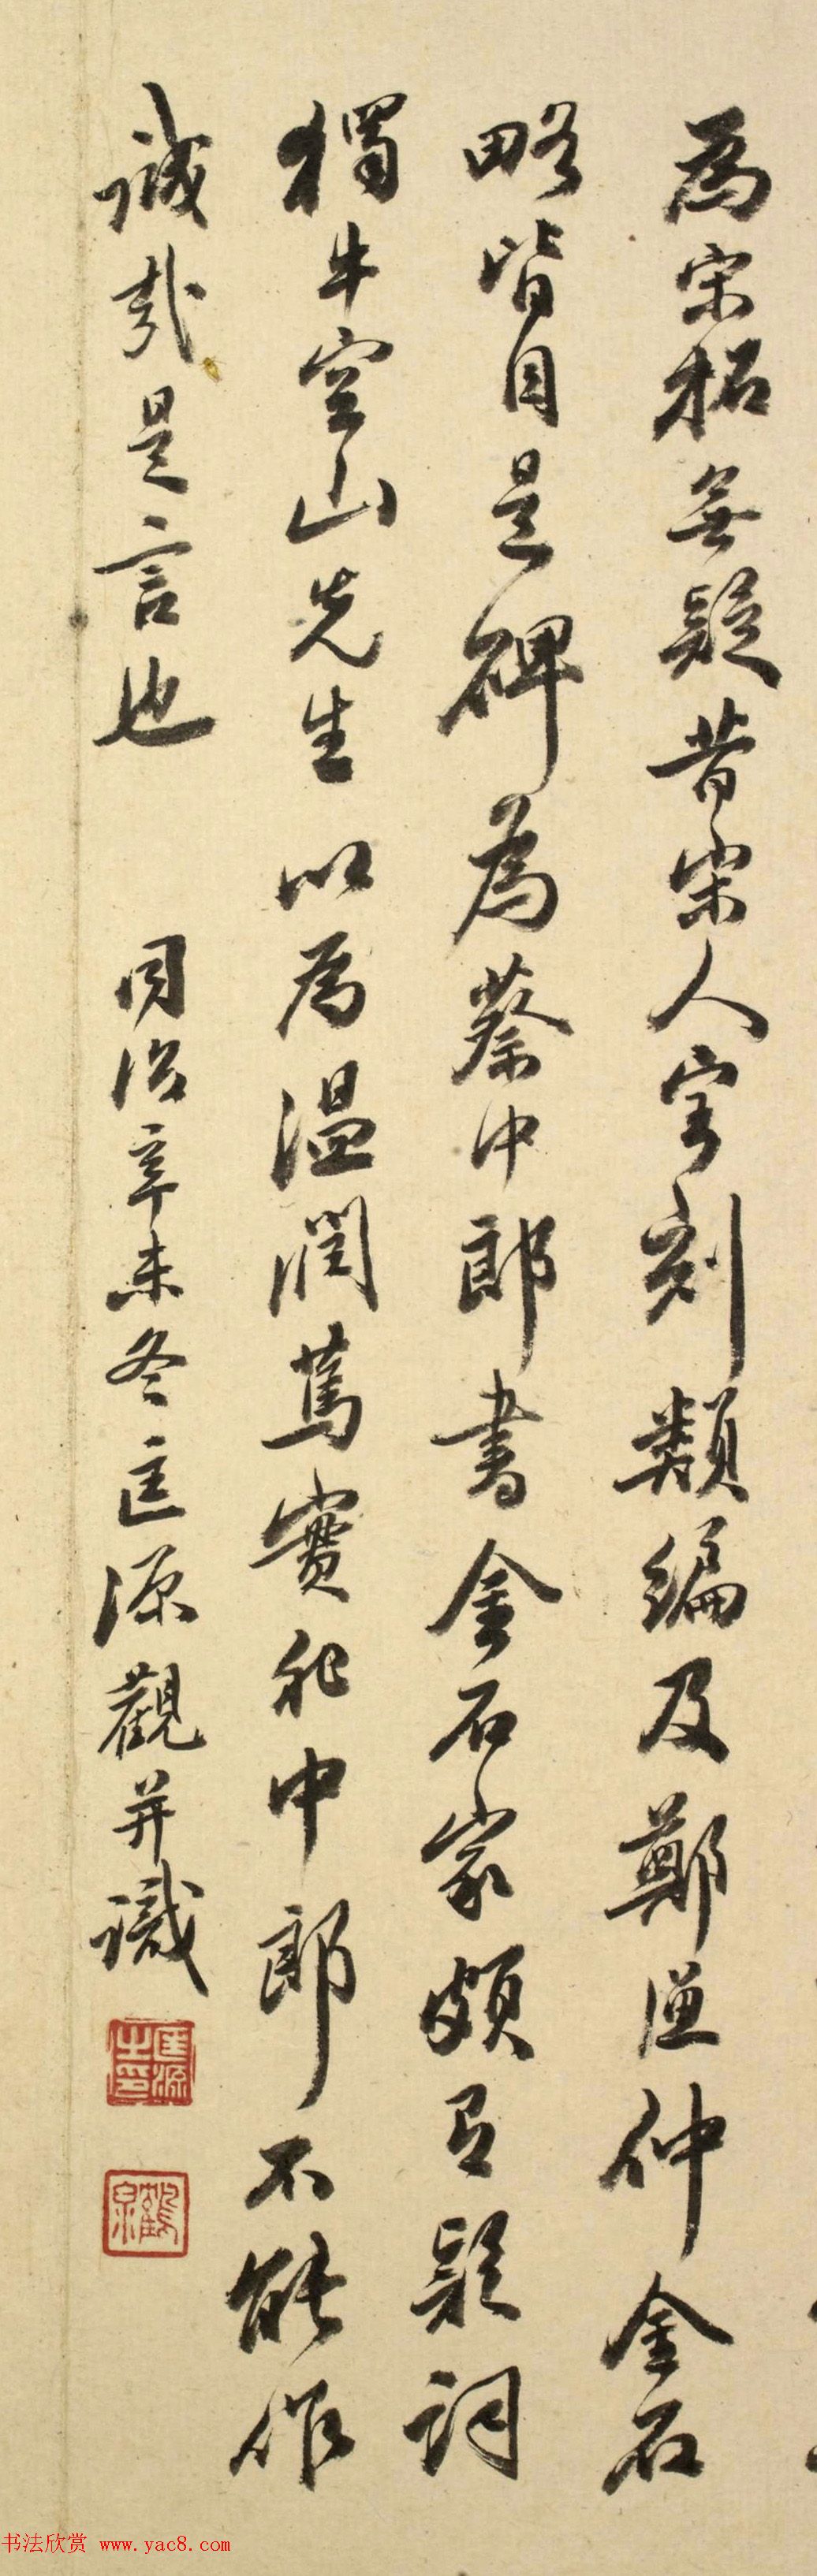 為宋拓無疑昔宋人寶刻類編及鄭漁仲金石
略皆目是碑為蔡中郎書金石家頗有疑詞
獨牛空山先生以為温潤篤實非中郎不能作
誠哉是言也 同治辛未冬匡源觀并識
匡源之印
鶴泉
书法欣赏 www.yac8.com